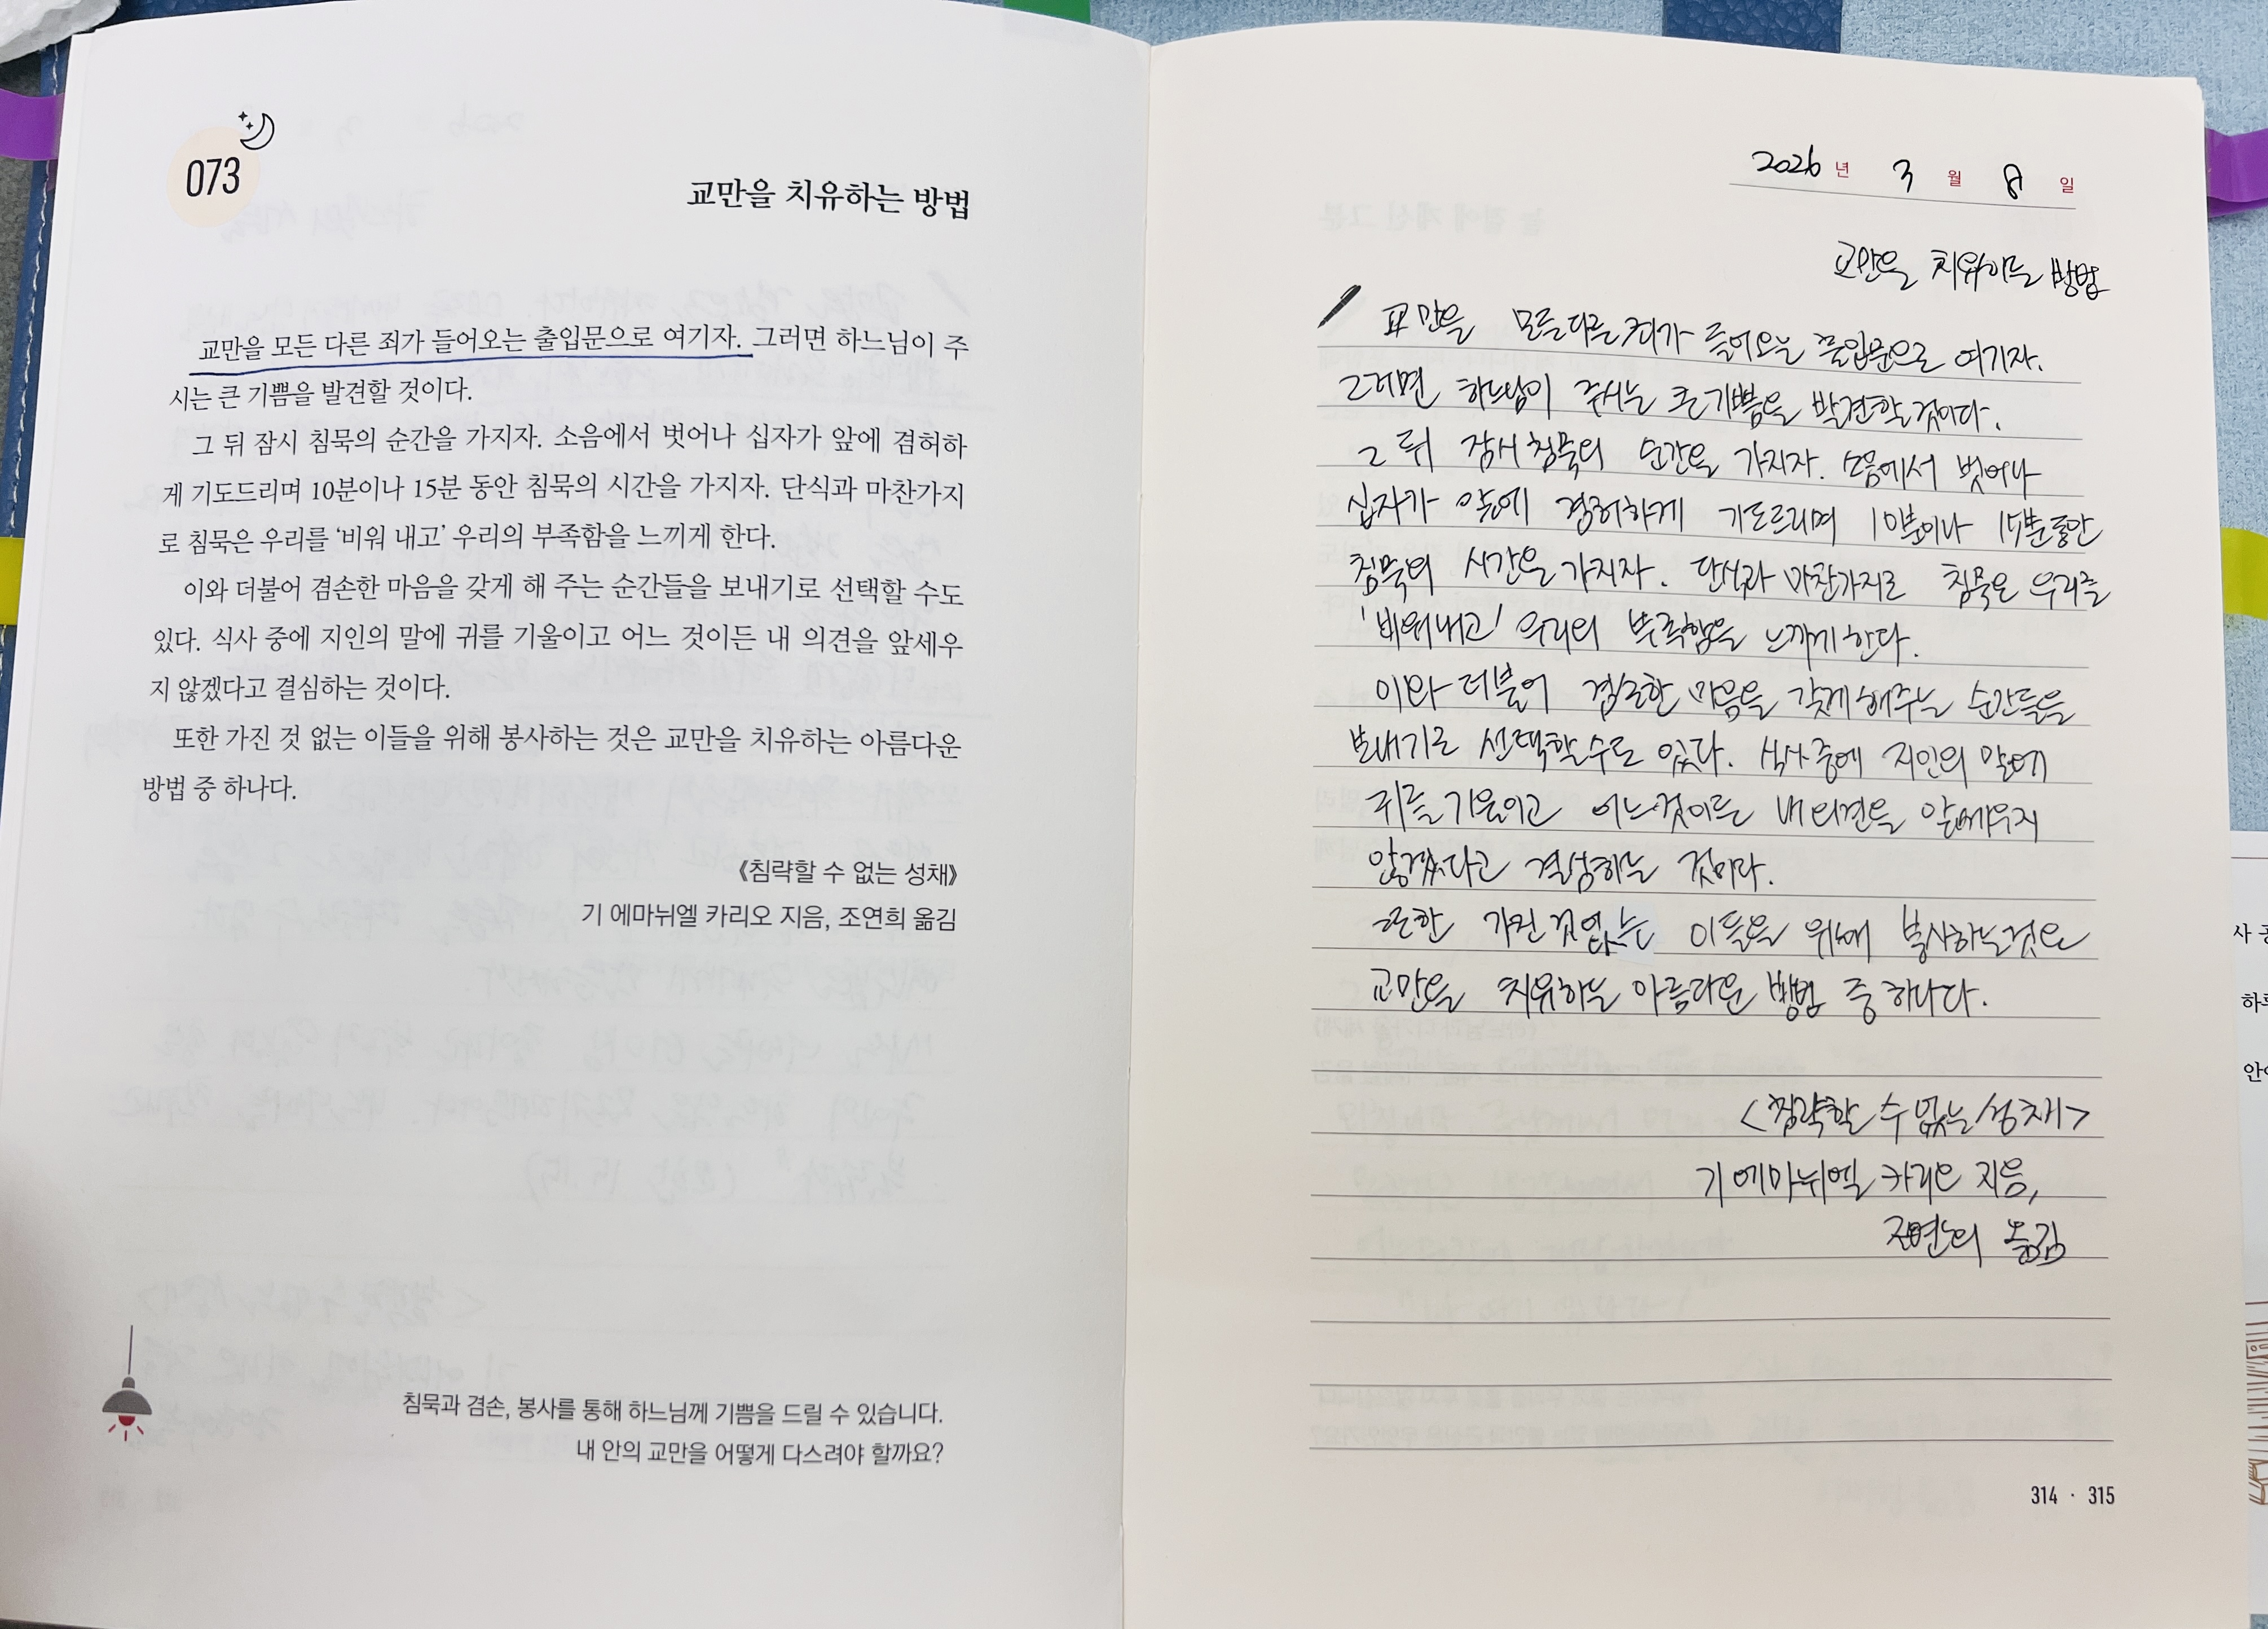 073
교만을 치유하는 방법
교만을 모든 다른 죄가 들어오는 출입문으로 여기자. 그러면 하느님이 주
시는 큰 기쁨을 발견할 것이다.
그 뒤 잠시 침묵의 순간을 가지자. 소음에서 벗어나 십자가 앞에 겸허하
게 기도드리며 10분이나 15분 동안 침묵의 시간을 가지자. 단식과 마찬가지
로 침묵은 우리를 ‘비워 내고’ 우리의 부족함을 느끼게 한다.
이와 더불어 겸손한 마음을 갖게 해 주는 순간들을 보내기로 선택할 수도
있다. 식사 중에 지인의 말에 귀를 기울이고 어느 것이든 내 의견을 앞세우
지 않겠다고 결심하는 것이다.
또한 가진 것 없는 이들을 위해 봉사하는 것은 교만을 치유하는 아름다운
방법 중 하나다.
《침략할 수 없는 성채》
기 에마뉘엘 카리오 지음, 조연희 옮김
침묵과 겸손, 봉사를 통해 하느님께 기쁨을 드릴 수 있습니다.
내 안의 교만을 어떻게 다스려야 할까요?
2026 년 3 월 8 일
교만을 치유하는 방법
교만을 모든 다른 죄가 들어오는 출입문으로 여기자.
그러면 하느님이 주시는 큰 기쁨을 발견할 것이다.
그 뒤 잠시 침묵의 순간을 가지자. 소음에서 벗어나
십자가 앞에 겸허하게 기도드리며 10분이나 15분 동안
침묵의 시간을 가지자. 단식과 마찬가지로 침묵은 우리를
'비워 내고' 우리의 부족함을 느끼게 한다.
이와 더불어 겸손한 마음을 갖게 해주는 순간들을
보내기로 선택할 수도 있다. 식사 중에 지인의 말에
귀를 기울이고 어느 것이든 내 의견을 앞세우지
않겠다고 결심하는 것이다.
또한 가진 것 없는 이들을 위해 봉사하는 것은
교만을 치유하는 아름다운 방법 중 하나다.
<침략할 수 없는 성채>
기 에마뉘엘 카리오 지음,
조연희 옮김
314 · 315